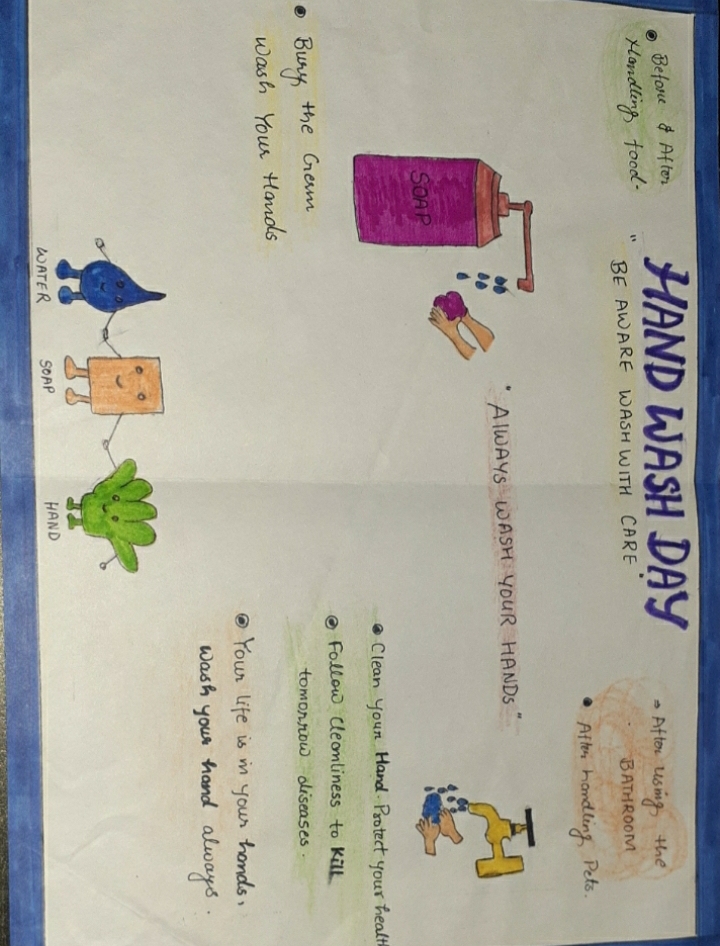 HAND WASH DAY
" BE AWARE WASH WITH CARE "
• Before & After
Handling food.
⇒ After using the
BATHROOM
• After handling Pets.
SOAP
" AlWAYS WASH YOUR HANDs "
• Bury the Germ
Wash Your Hands
• Clean your Hand. Protect your health
• Follow Cleanliness to Kill
tomorrow diseases.
• Your life is in your hands,
wash your hand always.
WATER
SOAP
HAND